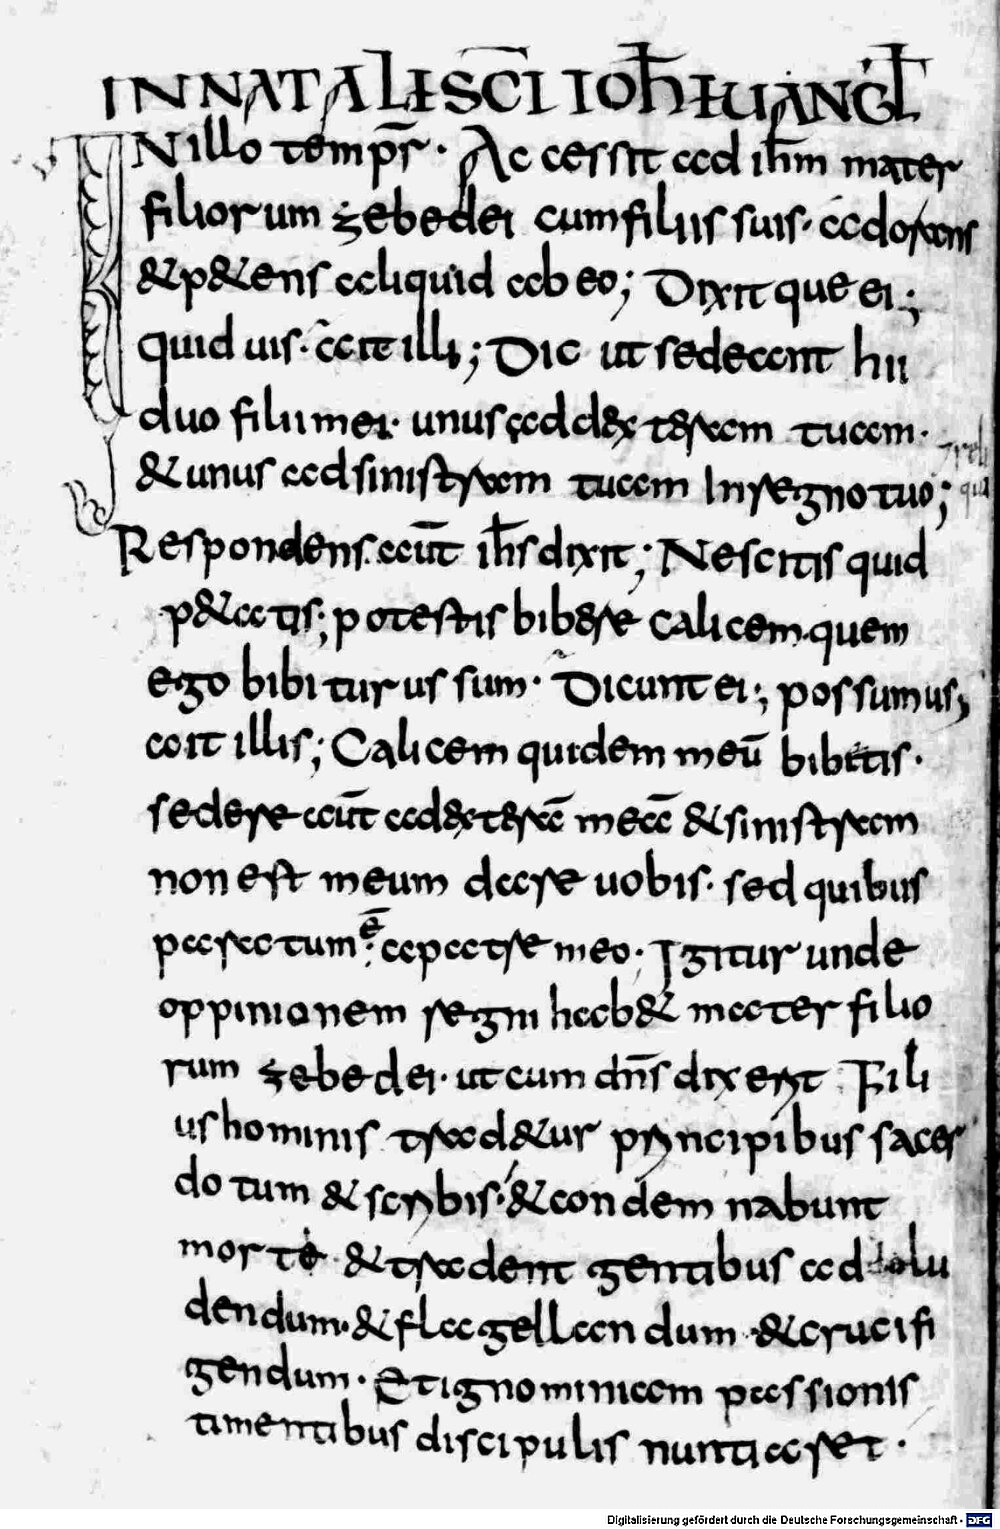 IN NATALI SC̄I IOH̄ EUANGL
IN illo temp̄r· Accessit ad ih̄m mater
filiorum zebedei cum filiis suis· adorans
& p&ens aliquid ab eo; Dixitque ei;
quid uis· ait illi; Dic ut sedeant hii
duo filii mei· unus ad dexteram tuam·
& unus ad sinistram tuam In regno tuo;
Respondens aut̄ ih̄s dixit; Nescitis quid
p&atis; potestis bibere calicem quem
ego bibiturus sum· Dicunt ei; possumus;
ait illis; Calicem quidem meū bibetis·
sedere aut̄ ad dexterā meā & sinistram
non est meum dare uobis· sed quibus
paratum ē· a patre meo· Igitur unde
oppinionem regni hab& mater filio
rum zebedei· ut cum dn̄s dixerit Fili
us hominis trad&ur principibus sacer
dotum & scribis· & condemnabunt
morte· & tradent gentibus ad dolu
dendum· & flagellandum· & crucifi
gendum· Et ignominiam passionis
timentibus discipulis nuntiaret·
reli
qua
Digitalisierung gefördert durch die Deutsche Forschungsgemeinschaft - DFG